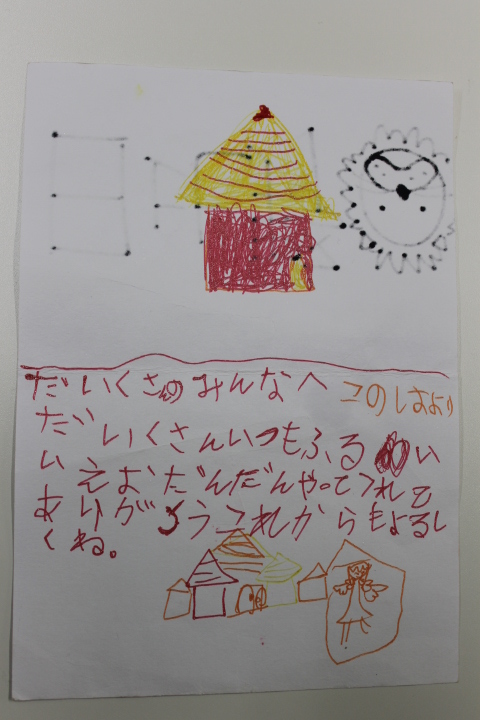 だいくさんのみんなへ このはより
だいくさんいつもふるい
いえおだんだんやってくれて
ありがとうこれからもよろし
くね。